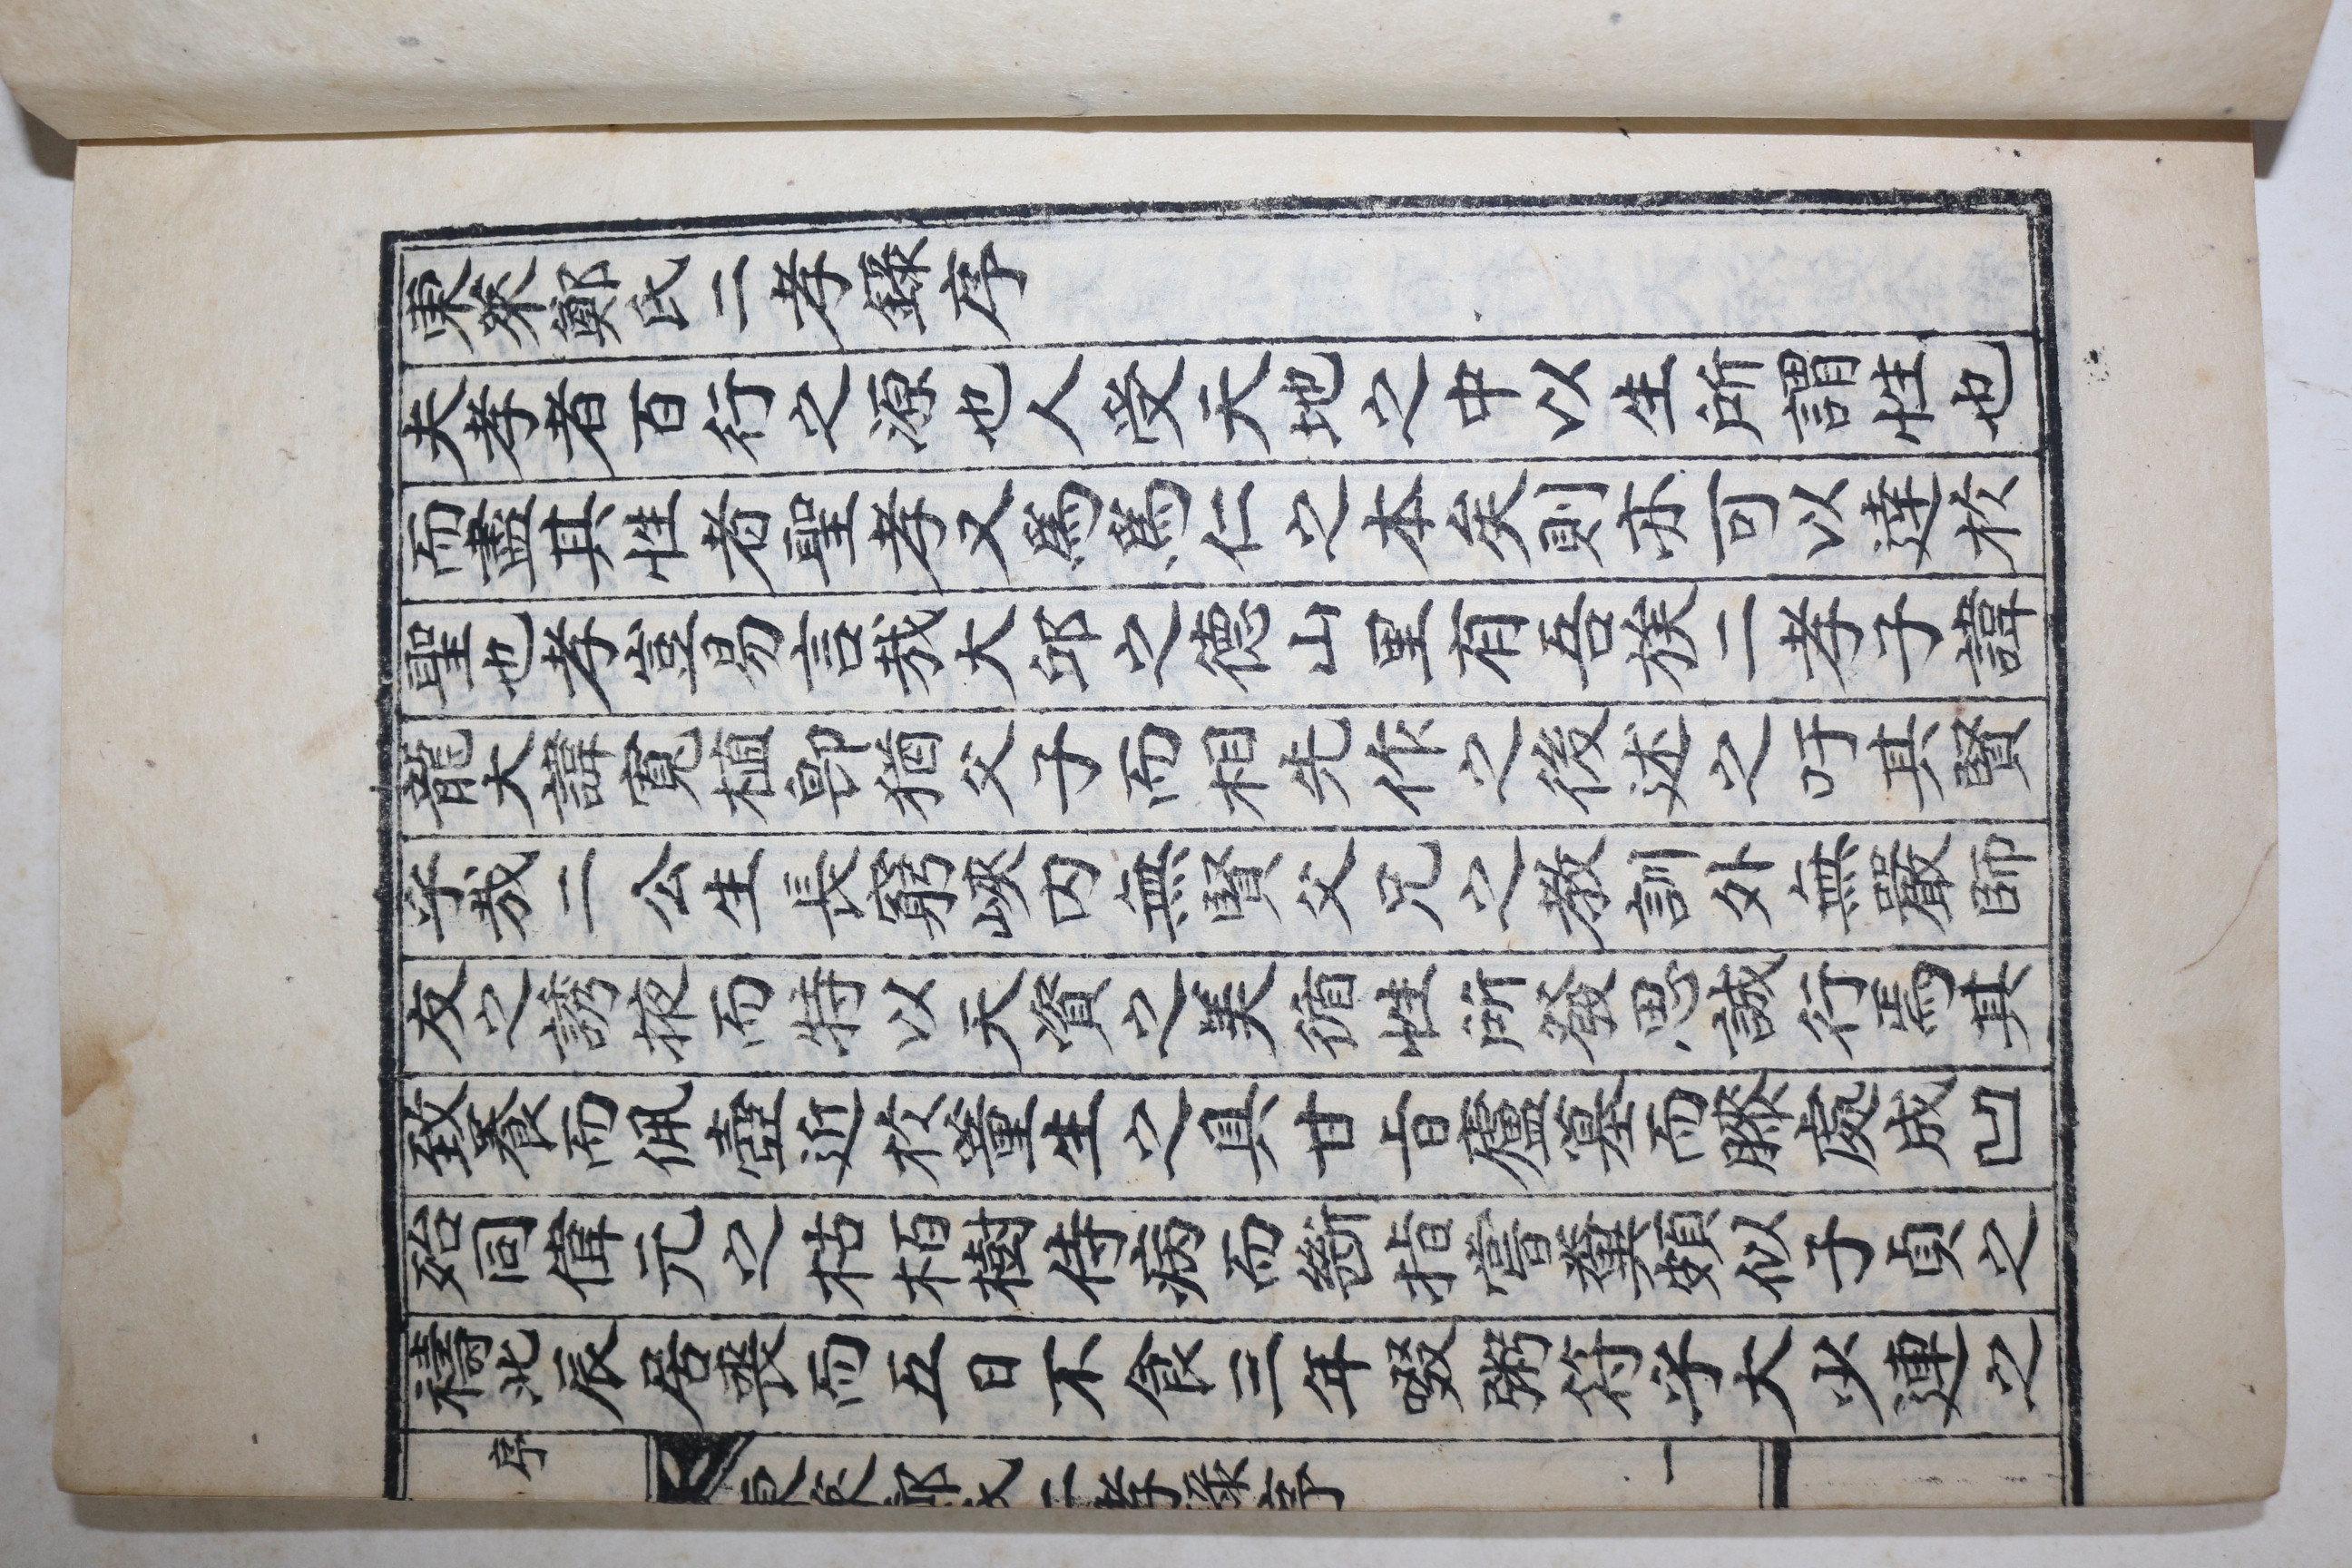 東萊鄭氏二孝錄序
夫孝者百行之源也人受天地之中以生所謂性也
而盡其性者聖孝又爲爲仁之本矣則亦可以達於
聖也孝豈易言哉大邱之德山里有吾族二孝子諱
龍大諱寬植卽猶父子而相先作之後述之吁其賢
乎哉二公生長窮峽內無賢父兄之教訓外無嚴師
友之誘掖而特以天資之美循性所發思誠行焉其
致養而佩壺近於董生之具甘旨廬墓而膝處成凹
殆同偉元之枯栢樹侍病而斷指嘗糞頗似子貞之
禱北辰居喪而五日不食三年啜粥符乎大少連之
序
東萊鄭氏二孝錄序
一